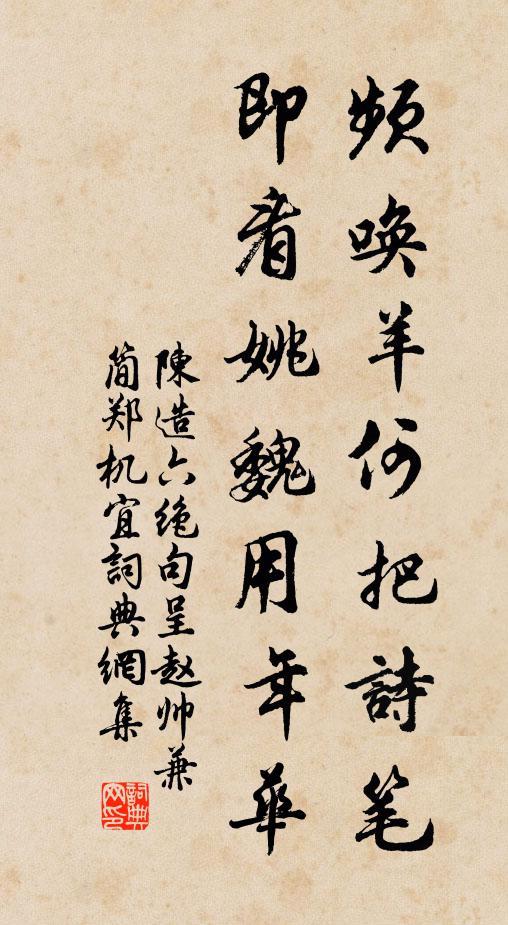 頻唤羊何把詩笔
即看姚魏用年華
陳造六绝句呈赵帅兼
简郑机宜詞典網集
詞典網印